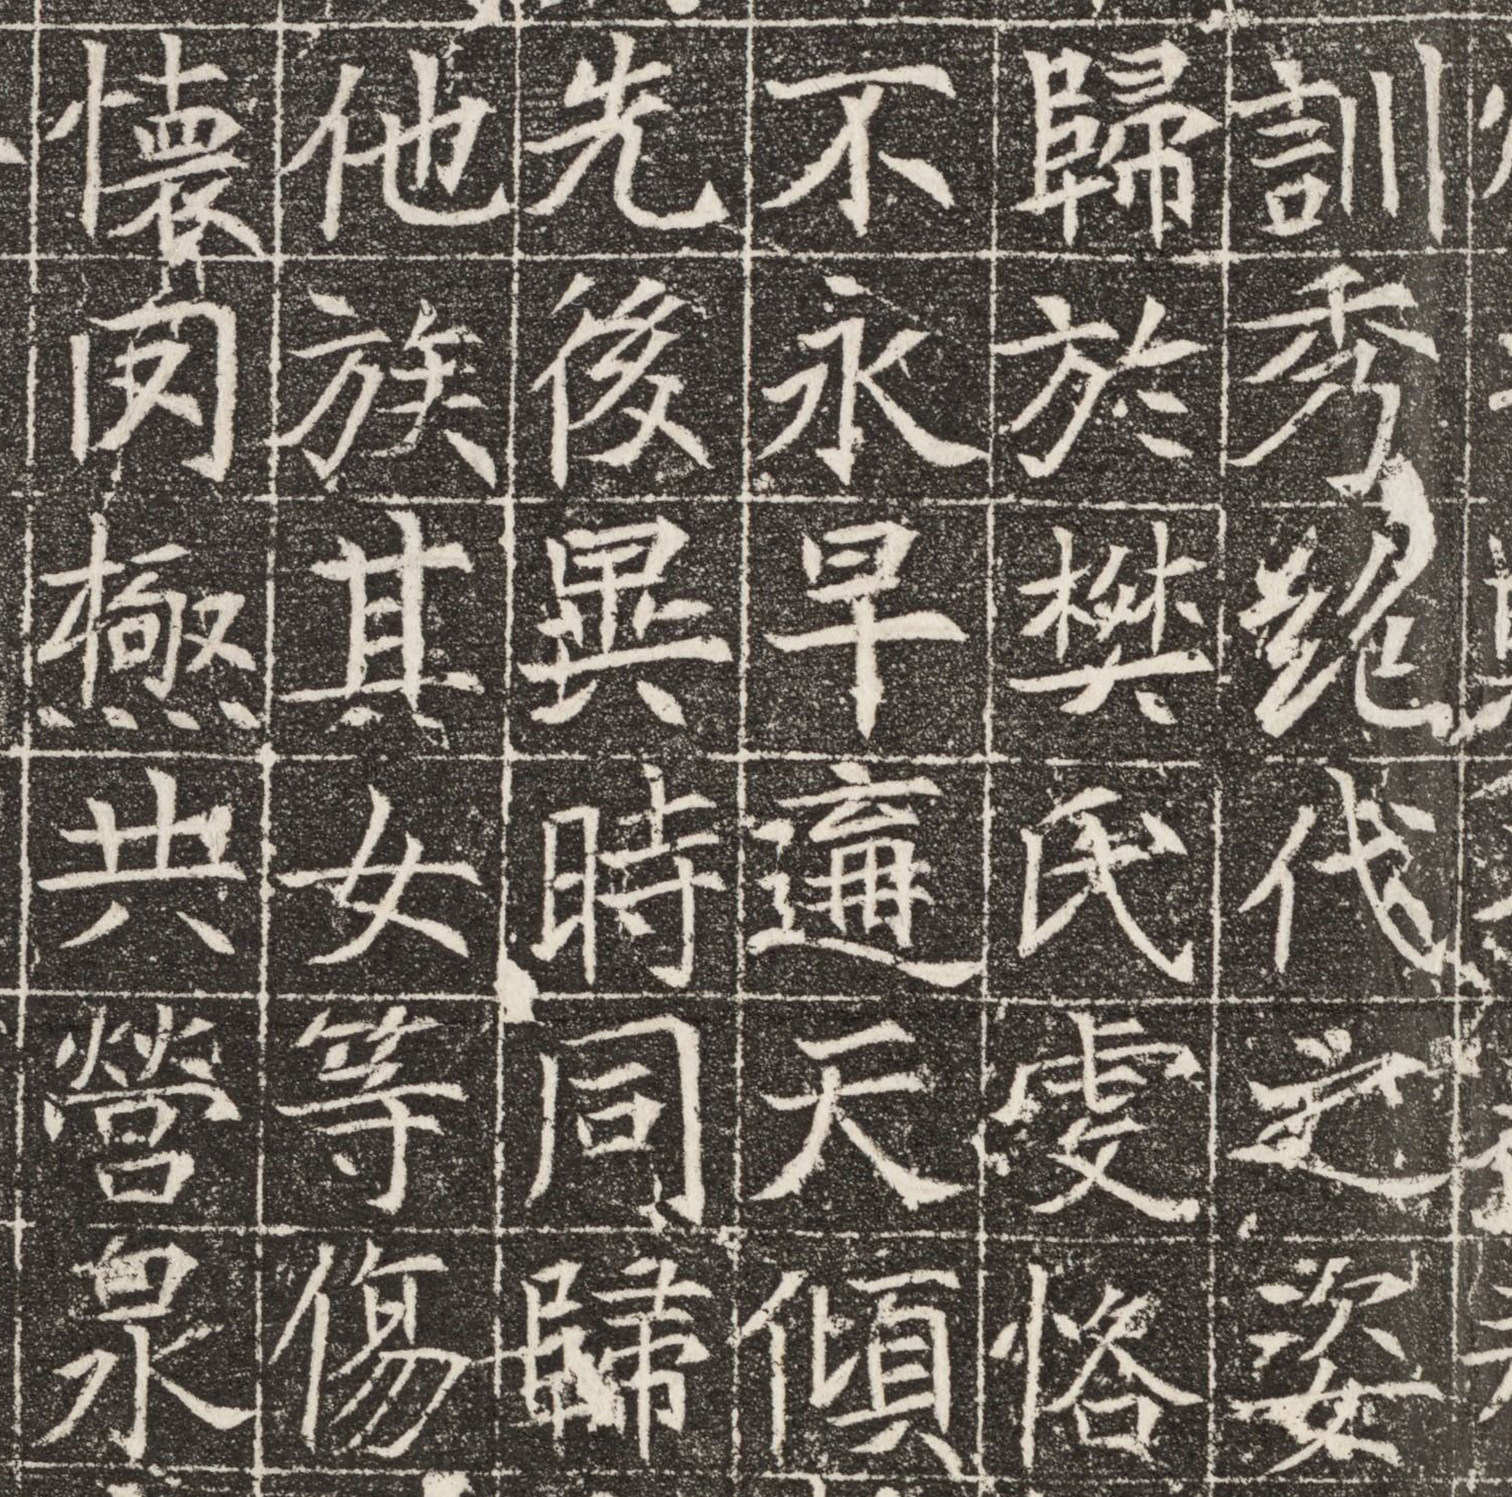 訓秀絕代之姿
歸於樊氏虔恪
不永早遘夭傾
先後異時同歸
他族其女等傷
懷罔極共營泉